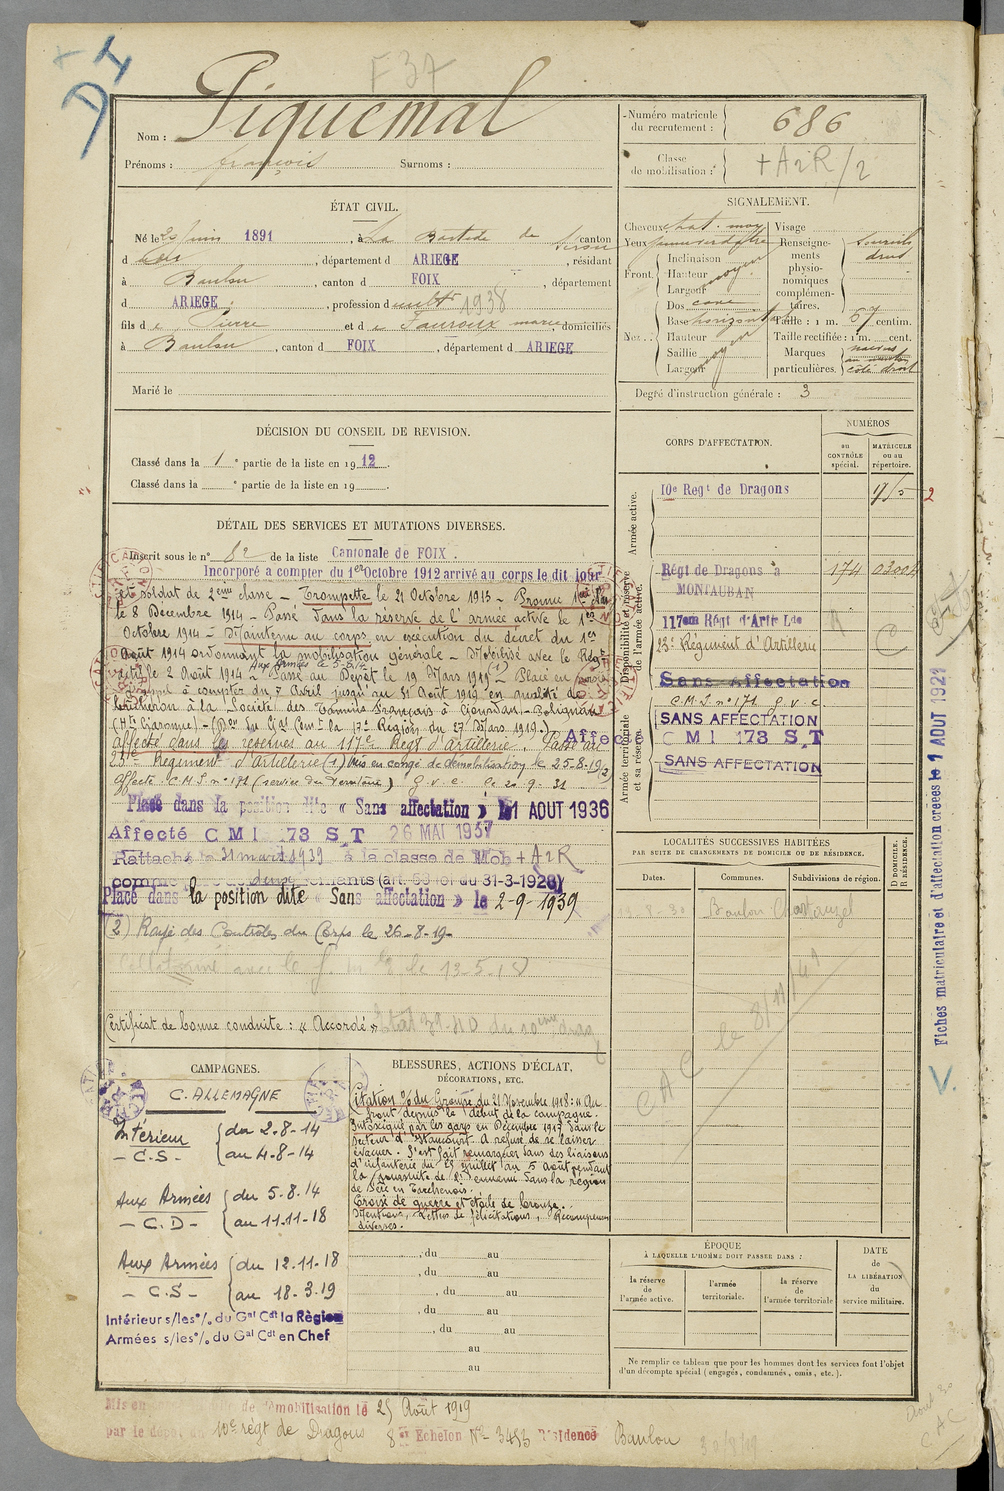 F 37
Nom : Piquemal
Prénoms : françois Surnoms :
Numéro matricule du recrutement : 686
Classe de mobilisation : + A2R/2
ÉTAT CIVIL.
Né le 20 juin 1891, à La Bastide de Serou canton
d dit, département d ARIEGE, résidant
à Baulou, canton d FOIX, département
d ARIEGE, profession d cult 1938
fils de Pierre et de Tauroux marie, domiciliés
à Baulou, canton d FOIX, département d ARIEGE
Marié le
SIGNALEMENT.
Cheveux chat. moy
Yeux
Front.
Inclinaison
Hauteur
Largeur
moyen
Nez.
Dos cave
Base horizontale
Hauteur
Saillie
Largeur
moyen
Visage
Renseignements physionomiques complémentaires.
sourcils droits
Taille : 1 m. 67 centim.
Taille rectifiée : 1 m. cent.
Marques particulières.
côté droit
Degré d'instruction générale : 3
DÉCISION DU CONSEIL DE REVISION.
Classé dans la 1e partie de la liste en 1912.
Classé dans la e partie de la liste en 19
CORPS D'AFFECTATION.
NUMÉROS
au CONTRÔLE spécial.
MATRICULE ou au répertoire.
Armée active.
10e Regt de Dragons
Disponibilité et réserve de l'armée active.
Régt de Dragons à 174 03004
MONTAUBAN
117em Régt d'Artie Lde
23e Régiment d'Artillerie
Sans Affectation
Armée territoriale et sa réserve.
C.M.I. n° 171 g.v.c
SANS AFFECTATION
C M I 173 S.T
SANS AFFECTATION
DÉTAIL DES SERVICES ET MUTATIONS DIVERSES.
Inscrit sous le n° 82 de la liste Cantonale de FOIX.
Incorporé a compter du 1er Octobre 1912 arrivé au corps le dit jour
et soldat de 2eme classe – Trompette le 21 Octobre 1913 – Promu 1ere
le 8 Décembre 1914 – Passé dans la réserve de l'armée active le 1er
Octobre 1914 – Maintenu au corps en exécution du décret du 1er
Août 1914 ordonnant la mobilisation générale – Mobilisé avec le Régt
aux Armées le 5-8-14
le 2 Août 1914 – Passé au Dépôt le 19 Mars 1919 – (1) Placé en
à compter du 7 Avril jusqu'au 31 Août 1919 en qualité de
bucheron à la Société des Tanins Français à Gourdan-Polignan
(Hte Garonne) – (Don du Gal Comt la 17e Région du 27 Mars 1919.)
affecté dans les réserves au 117e Régt d'Artillerie. Passé au
23e Régiment d'Artillerie (1) Mis en congé de démobilisation le 25-8-19 (2)
Affecté C.M.I. n° 171 (service du Territoire) g.v.c. le 20.9.31
Placé dans la position dite « Sans affectation » le 1 AOUT 1936
Affecté C M I 173 S.T 26 MAI 1937
Affecté
Rattaché le 31 mars 1939 à la classe de Mob + A2R
comme père de deux enfants (art. 58 loi du 31-3-1928)
Placé dans la position dite « Sans affectation » le 2-9-1939
(2) Rayé des Contrôles du Corps le 26-8-19
Collationné avec le le 13-5-18
Certificat de bonne conduite : « Accordé »
LOCALITÉS SUCCESSIVES HABITÉES
PAR SUITE DE CHANGEMENTS DE DOMICILE OU DE RÉSIDENCE.
Dates. Communes. Subdivisions de région. D DOMICILE. R RÉSIDENCE.
Baulou
CAC le 8/11/41
Fiches matriculaire et d'affectation créées le 1 AOUT 1921
CAMPAGNES.
C. ALLEMAGNE
Intérieur – C.S – du 2-8-14 au 4-8-14
Aux Armées – C.D – du 5.8.14 au 11-11-18
Aux Armées – C.S – du 12-11-18 au 18-3-19
Intérieur s/les o/. du Gal Cdt la Région
Armées s/les o/. du Gal Cdt en Chef
BLESSURES, ACTIONS D'ÉCLAT,
DÉCORATIONS, ETC.
Citation o/ du Groupe du 21 Novembre 1918 : « Au
front depuis le début de la campagne.
Intoxiqué par les gaz en Décembre 1917 dans le
secteur d'Haucourt. A refusé de se laisser
évacuer. S'est fait remarquer dans des liaisons
d'infanterie du 29 Juillet au 5 Août pendant
la poursuite de l'ennemi dans la région
de Fère en Tardenois.
Croix de guerre et étoile de bronze.
Mentions, Lettres de félicitations, Récompenses
diverses.
, du au
, du au
, du au
, du au
, du au
au
au
ÉPOQUE
À LAQUELLE L'HOMME DOIT PASSER DANS :
la réserve de l'armée active.
l'armée territoriale.
la réserve de l'armée territoriale
DATE de LA LIBÉRATION du service militaire.
Ne remplir ce tableau que pour les hommes dont les services font l'objet
d'un décompte spécial (engagés, condamnés, omis, etc.).
Mis en de démobilisation le 25 Août 1919
par le dépôt du 10e régt de Dragons 8e Echelon N° 3453 Résidence Baulou